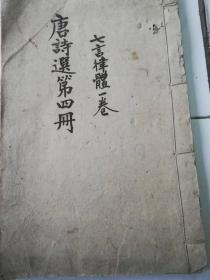 七言律體一卷
唐詩選第四冊